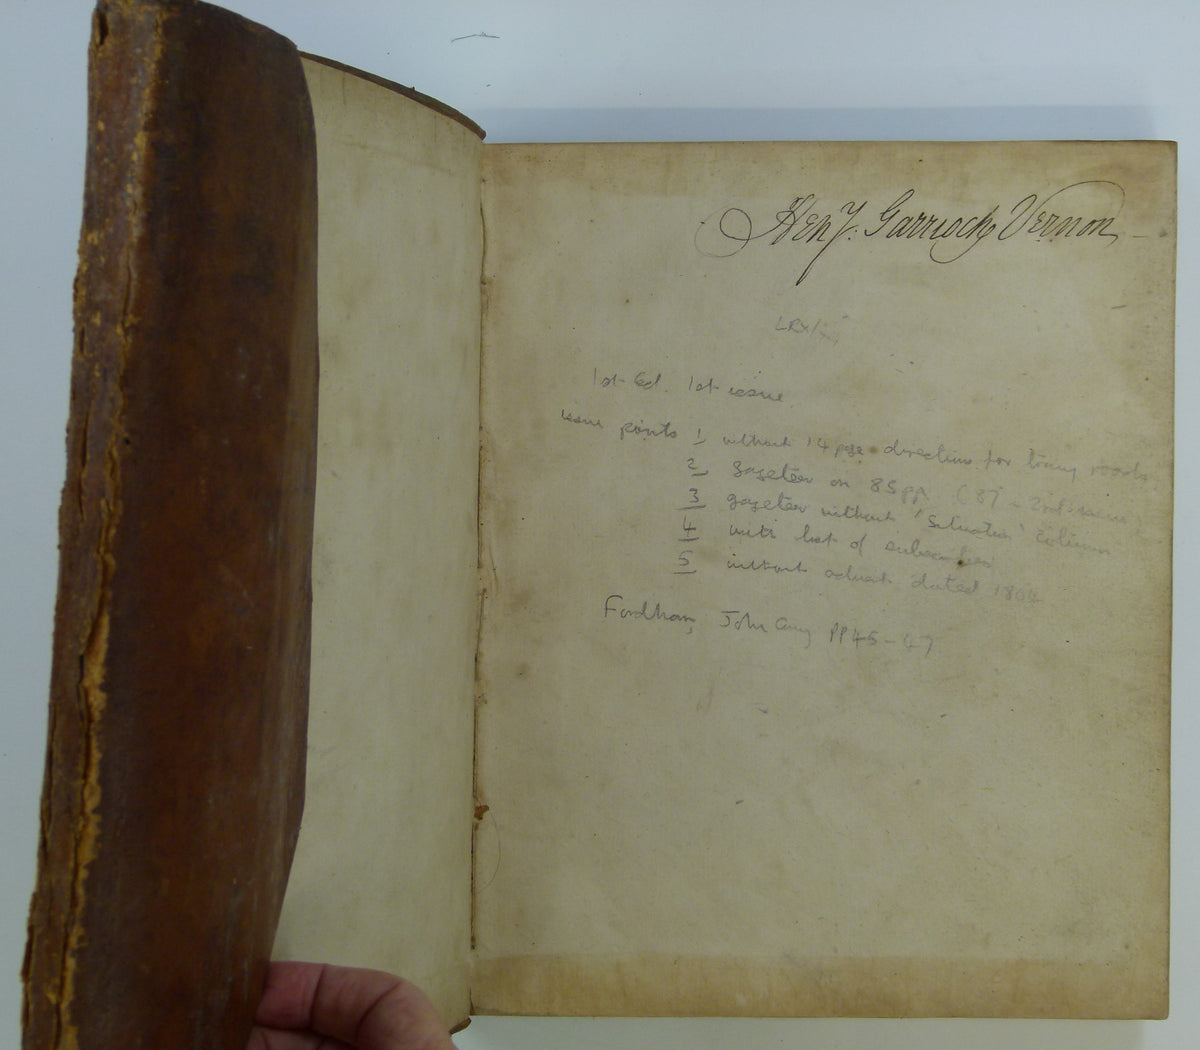 Henʸ: Garrioch Vernon
1st Ed. 1st issue
issue points 1 without 14 page directions for roads
2 gazeteer on 85 pp. (87 - 2nd issue)
3 gazeteer without 'Situation' column
4 with list of subscribers
5 without advert. dated 1804
Fordham, John Cary PP 45-47